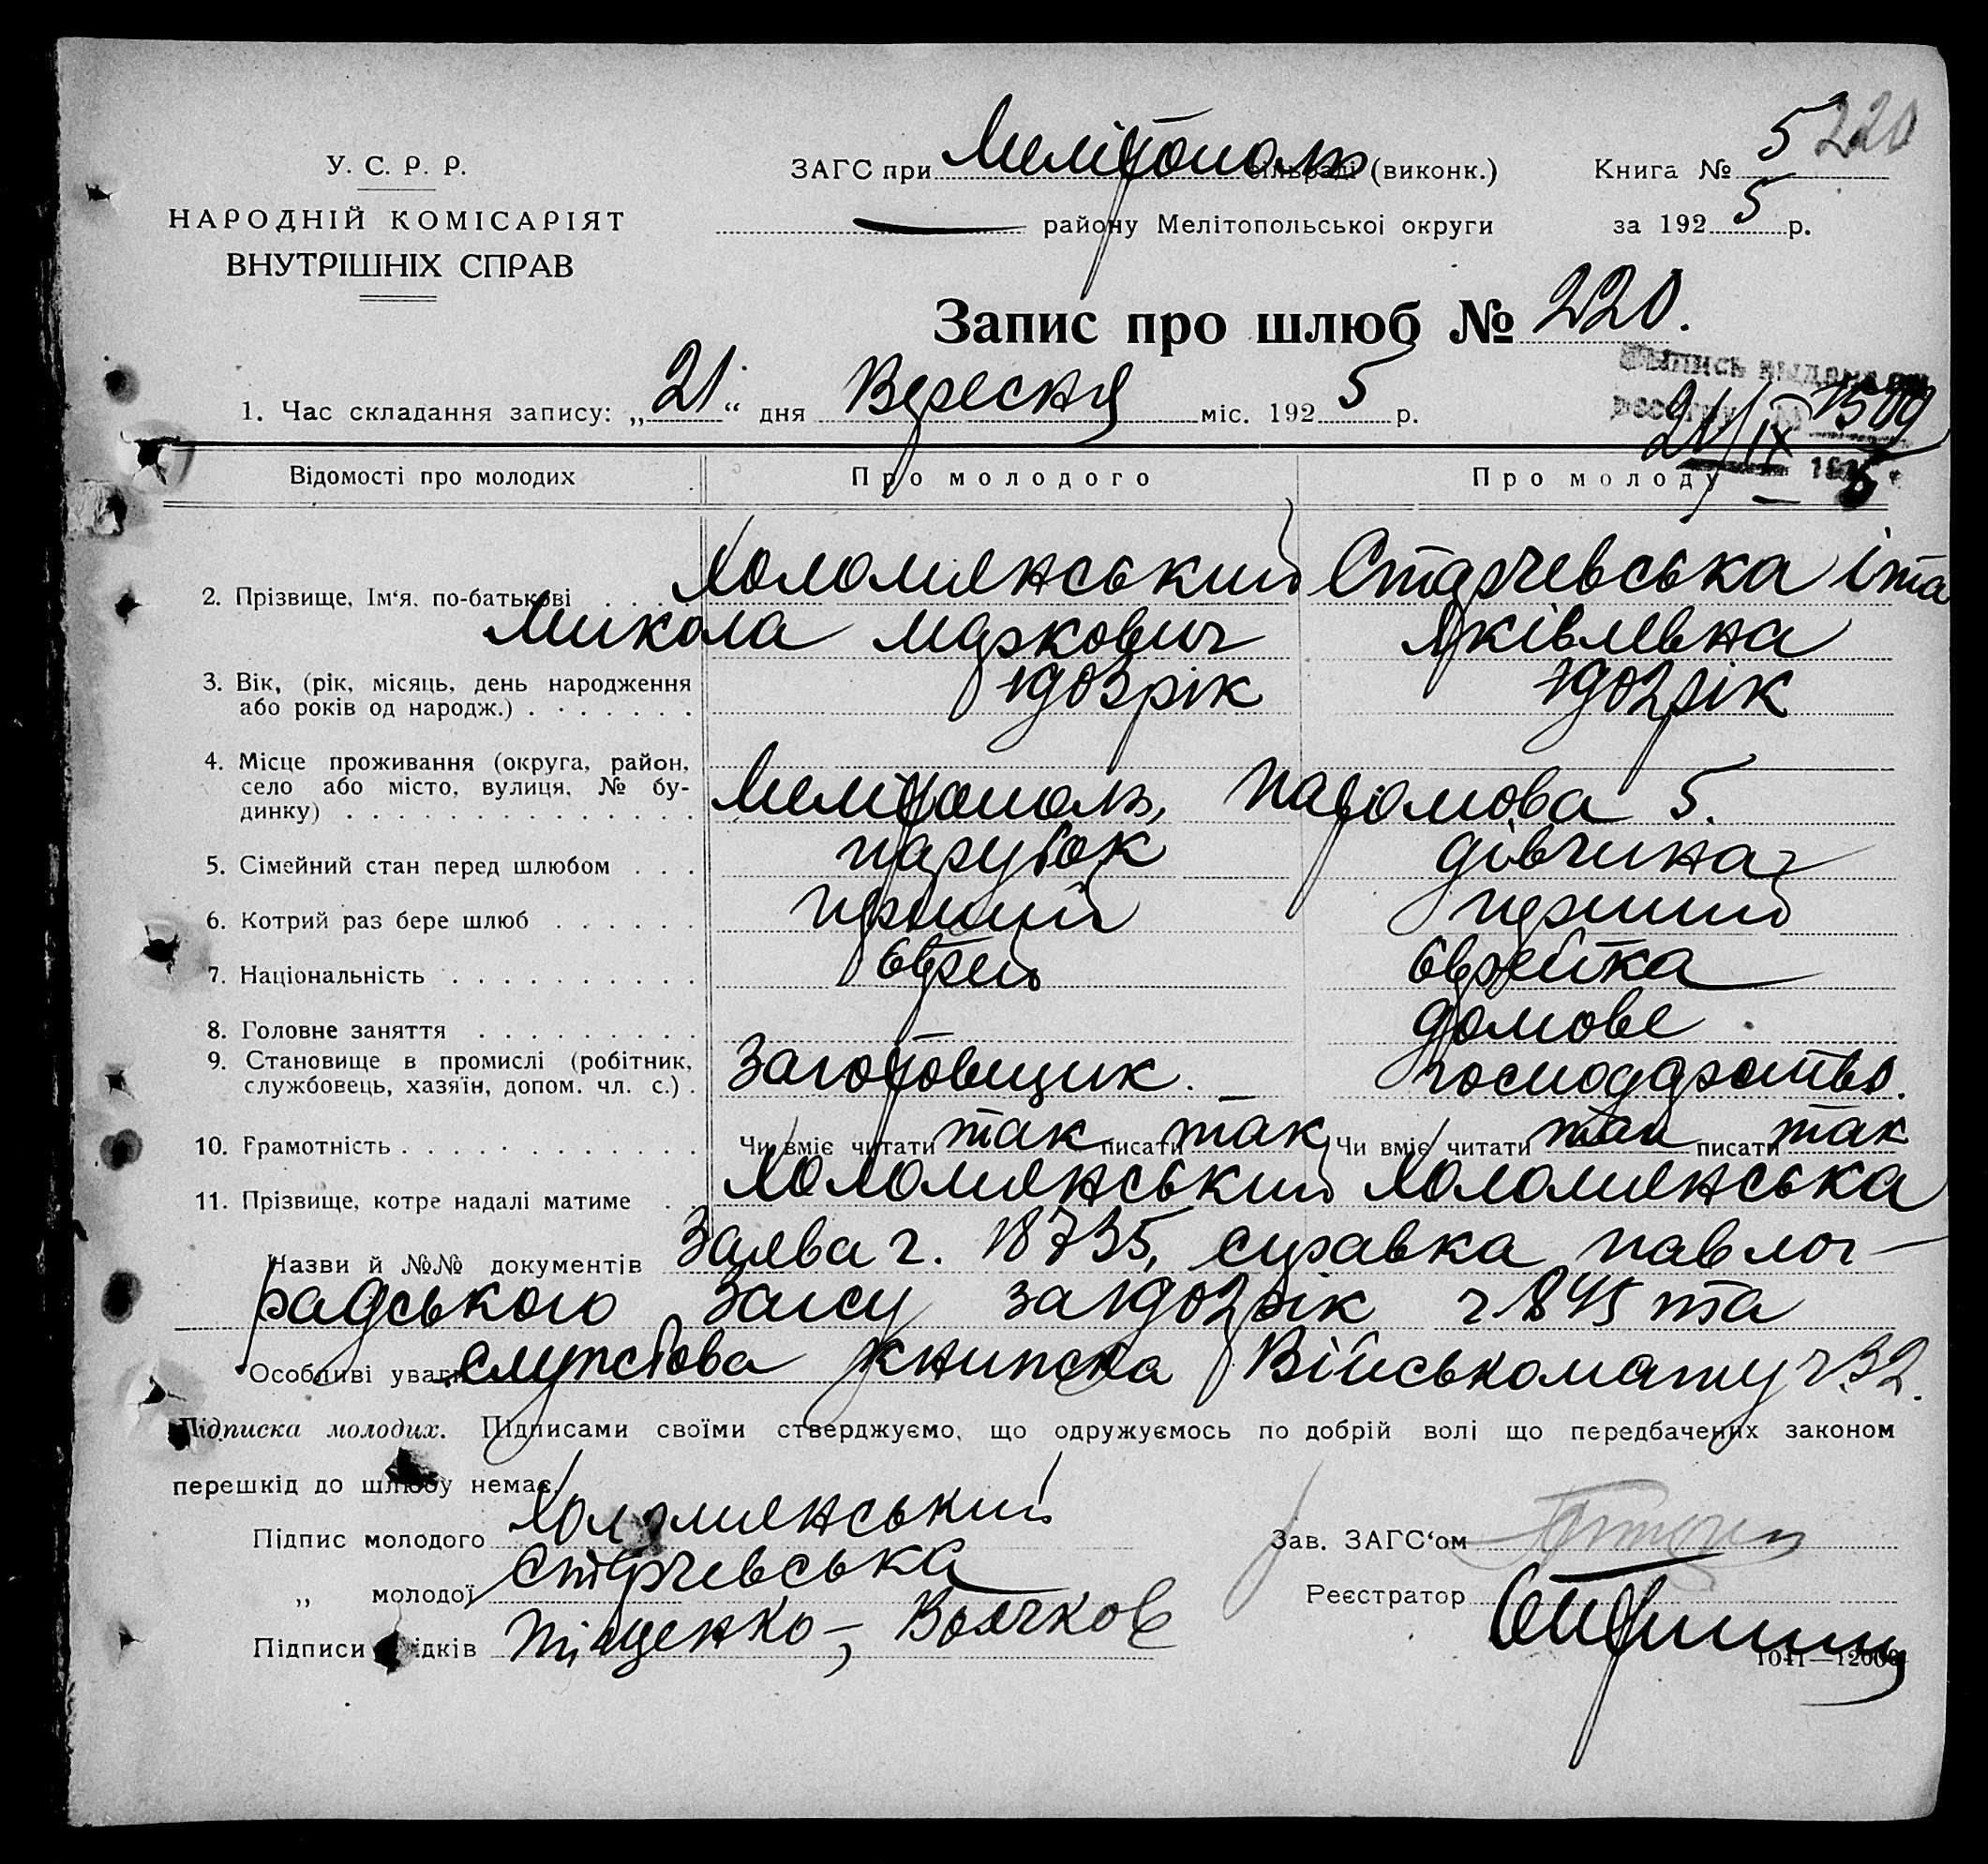 220
У. С. Р. Р.
НАРОДНІЙ КОМІСАРІЯТ
ВНУТРІШНІХ СПРАВ
ЗАГС при Мелітополь сільраді (виконк.)
Книга № 5
району Мелітопольської округи
за 1925 р.
Запис про шлюб № 220.
1. Час складання запису: „21“ дня Вересня міс. 1925 р.
21/IX
Відомості про молодих
Про молодого
Про молоду
2. Прізвище, Ім‘я, по-батькові
Холомлянський Микола Маркович
Старчевська Іта Яківлевна
3. Вік, (рік, місяць, день народження або років од народж.)
1903 рік
1902 рік
4. Місце проживання (округа, район, село або місто, вулиця, № будинку)
Мелітополь, 5.
5. Сімейний стан перед шлюбом
парубок
дівчина
6. Котрий раз бере шлюб
перший
перший
7. Національність
єврей
єврейка
8. Головне заняття
домове
9. Становище в промислі (робітник, службовець, хазяїн, допом. чл. с.)
Заготовщик.
господарство.
10. Грамотність
Чи вміє читати так писати так
Чи вміє читати так писати так
11. Прізвище, котре надалі матиме
Холомлянський
Холомлянська
Назви й №№ документів Заява ч. 18735, справка павлог-
радського Загсу за 1902 рік ч. 845 та
Особливі уваги книжка Військомату ч 32.
Підписка молодих. Підписами своїми стверджуємо, що одружуємось по добрій волі що передбачених законом
перешкід до шлюбу немає.
Підпис молодого Холомлянський
Зав. ЗАГС‘ом
„ молодої Старчевська
Реєстратор
Підписи свідків Піщенко –, Волчков
1041—12000